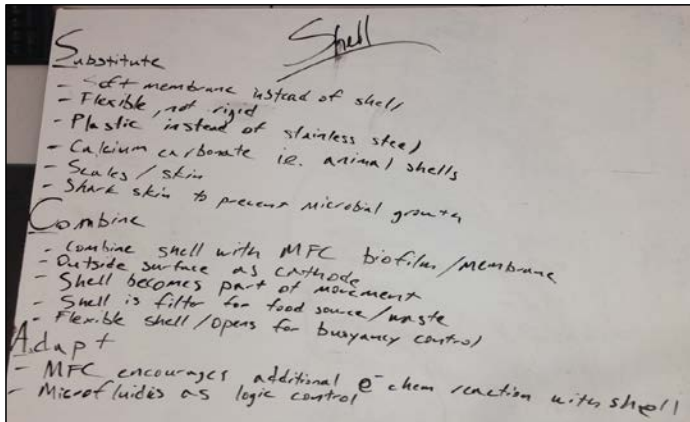 Shell
Substitute
- Soft membrane instead of shell
- Flexible, not rigid
- Plastic instead of stainless steel
- Calcium carbonate i.e. animal shells
- Scales / skin
- Shark skin to prevent microbial growth
Combine
- Combine shell with MFC biofilm/membrane
- Outside surface as cathode
- Shell becomes part of movement
- Shell is filter for food source/waste
- Flexible shell/opens for buoyancy control
Adapt
- MFC encourages additional e⁻chem reaction with shell
- Microfluidis as logic control